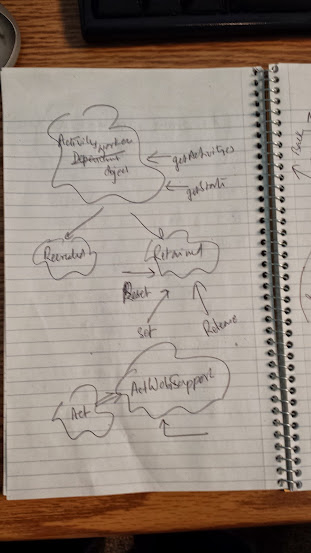 Activity worker
Dependent
object
getActivities
getStart
Recreated
Retained
Reset
Set
Release
Act
ActWebSupport
Base